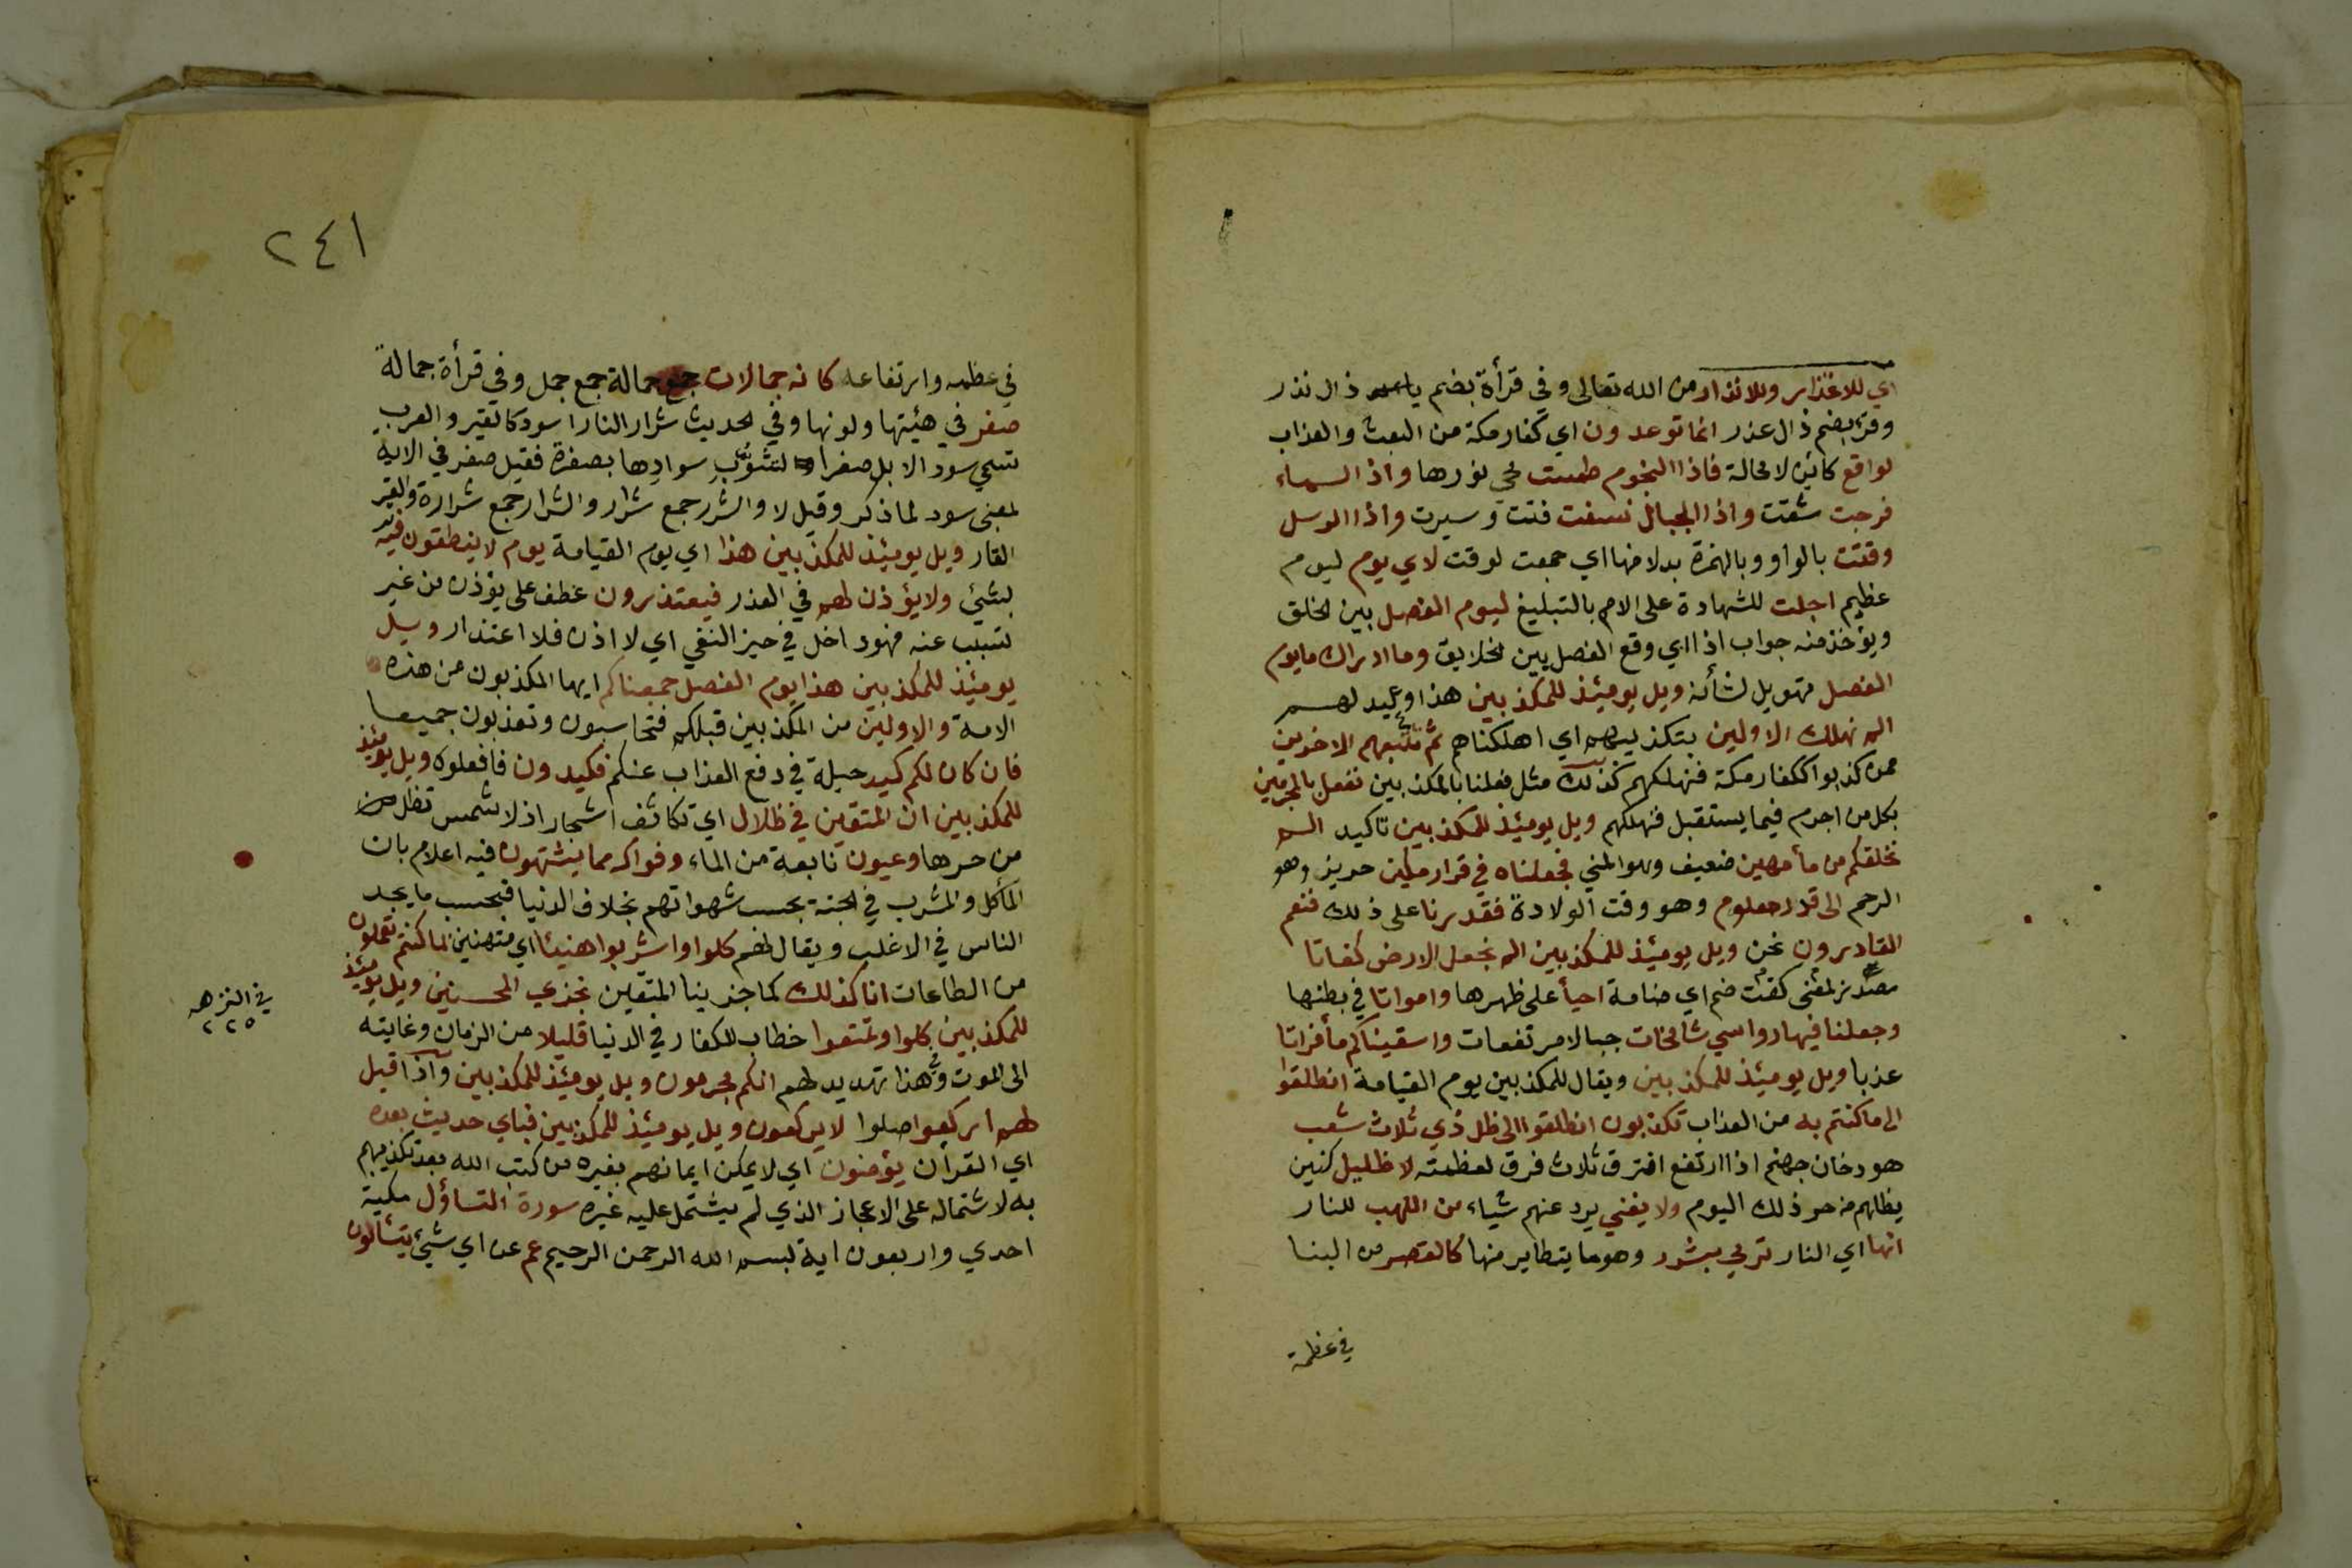 اي للاعذار وللانذار من الله تعالى وفي قرأة بضم ذال نذر
وقرئ بضم ذال عذر انما توعدون اي كفار مكة من البعث والعذاب
لواقع كائن لا محالة فاذا النجوم طمست محي نورها واذا السماء
فرجت شقت واذا الجبال نسفت فتت وسيرت واذا الرسل
وقتت بالواو وبالهمزة بدلا منها اي جمعت لوقت لاي يوم ليوم
عظيم اجلت للشهادة على الامم بالتبليغ ليوم الفصل بين الخلق
ويؤخذ منه جواب اذا اي وقع الفصل بين الخلايق وما ادراك ما يوم
الفصل تهويل لشأنه ويل يومئذ للمكذبين هذا وعيد لهم
الم نهلك الاولين بتكذيبهم اي اهلكناهم ثم نتبعهم الاخرين
ممن كذبوا ككفار مكة فنهلكهم كذلك مثل فعلنا بالمكذبين نفعل بالمجرمين
بكل من اجرم فيما يستقبل فنهلكهم ويل يومئذ للمكذبين تاكيد الم
نخلقكم من مأ مهين ضعيف وهو المني فجعلناه في قرار مكين حريز وهو
الرحم الى قدر معلوم وهو وقت الولادة فقدرنا على ذلك فنعم
القادرون نحن ويل يومئذ للمكذبين الم نجعل الارض كفاتا
مصدر بمعنى كفت ضم اي ضامة احيأ على ظهرها وامواتا في بطنها
وجعلنا فيها رواسي شامخات جبالا مرتفعات واسقيناكم مأ فراتا
عذبا ويل يومئذ للمكذبين ويقال للمكذبين يوم القيامة انطلقوا
الى ما كنتم به من العذاب تكذبون انطلقوا الى ظل ذي ثلاث شعب
هو دخان جهنم اذا ارتفع افترق ثلاث فرق لعظمته لا ظليل كنين
يظلهم من حر ذلك اليوم ولا يغني يرد عنهم شياء من اللهب للنار
انها اي النار ترمي بشرر وهو ما يتطاير منها كالقصر من البنا
في عظمة
٢٤١
في عظمه وارتفاعه كانه جمالات جمع جمالة جمع جمل وفي قرأة جمالة
صفر في هيئتها ولونها وفي الحديث شرار النار اسود كالقير والعرب
تسمي سود الابل صفرا لتشوب سوادها بصفرة فقيل صفر في الاية
بمعنى سود لما ذكر وقيل لا والشرر جمع شرار والشرار جمع شرارة والقير
القار ويل يومئذ للمكذبين هذا اي يوم القيامة يوم لا ينطقون فيه
بشئ ولا يؤذن لهم في العذر فيعتذرون عطف على يؤذن من غير
تسبب عنه فهو داخل في حيز النفي اي لا اذن فلا اعتذار ويل
يومئذ للمكذبين هذا يوم الفصل جمعناكم ايها المكذبون من هذه
الامة والاولين من المكذبين قبلكم فتحاسبون وتعذبون جميعا
فان كان لكم كيد حيلة في دفع العذاب عنكم فكيدون فافعلوه ويل يومئذ
للمكذبين ان المتقين في ظلال اي تكاثف اشجار اذ لا شمس تظل من
من حرها وعيون نابعة من الماء وفواكه مما يشتهون فيه اعلام بان
المأكل والمشرب في الجنة بحسب شهواتهم بخلاف الدنيا فبحسب ما يجد
الناس في الاغلب ويقال لهم كلوا واشربوا هنيئا اي متهنين بما كنتم تعملون
من الطاعات انا كذلك كما جزينا المتقين نجزي المحسنين ويل يومئذ
للمكذبين كلوا وتمتعوا خطاب للكفار في الدنيا قليلا من الزمان وغايته
الى الموت وفي هذا تهديد لهم انكم مجرمون ويل يومئذ للمكذبين واذا قيل
لهم اركعوا صلوا لا يركعون ويل يومئذ للمكذبين فباي حديث بعده
اي القرأن يؤمنون اي لا يمكن ايمانهم بغيره من كتب الله بعد تكذيبهم
به لاشتماله على الاعجاز الذي لم يشتمل عليه غيره سورة التساؤل مكية
احدي واربعون اية بسم الله الرحمن الرحيم عم عن اي شئ يتسألون
في النزهه
٢٢٥